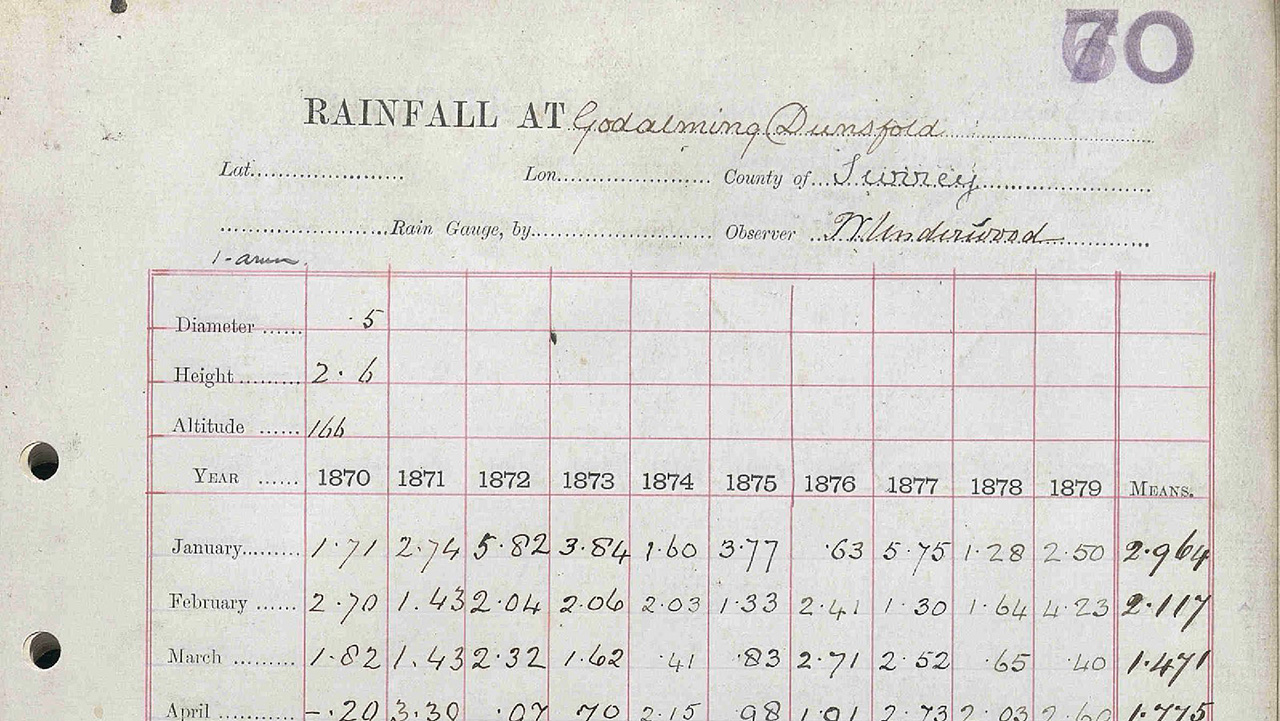 70
RAINFALL AT Godalming (Dunsfold
Lat. Lon. County of Surrey
Rain Gauge, by Observer W. Underwood
Diameter 5
Height 2.6
Altitude 166
YEAR 1870 1871 1872 1873 1874 1875 1876 1877 1878 1879 MEANS.
January 1.71 2.74 5.82 3.84 1.60 3.77 .63 5.75 1.28 2.50 2.964
February 2.70 1.43 2.04 2.06 2.03 1.33 2.41 1.30 1.64 4.23 2.117
March 1.82 1.43 2.32 1.62 .41 .83 2.71 2.52 .65 .40 1.471
April .20 3.30 .07 .70 2.15 .98 1.91 2.73 2.03 2.60 1.775